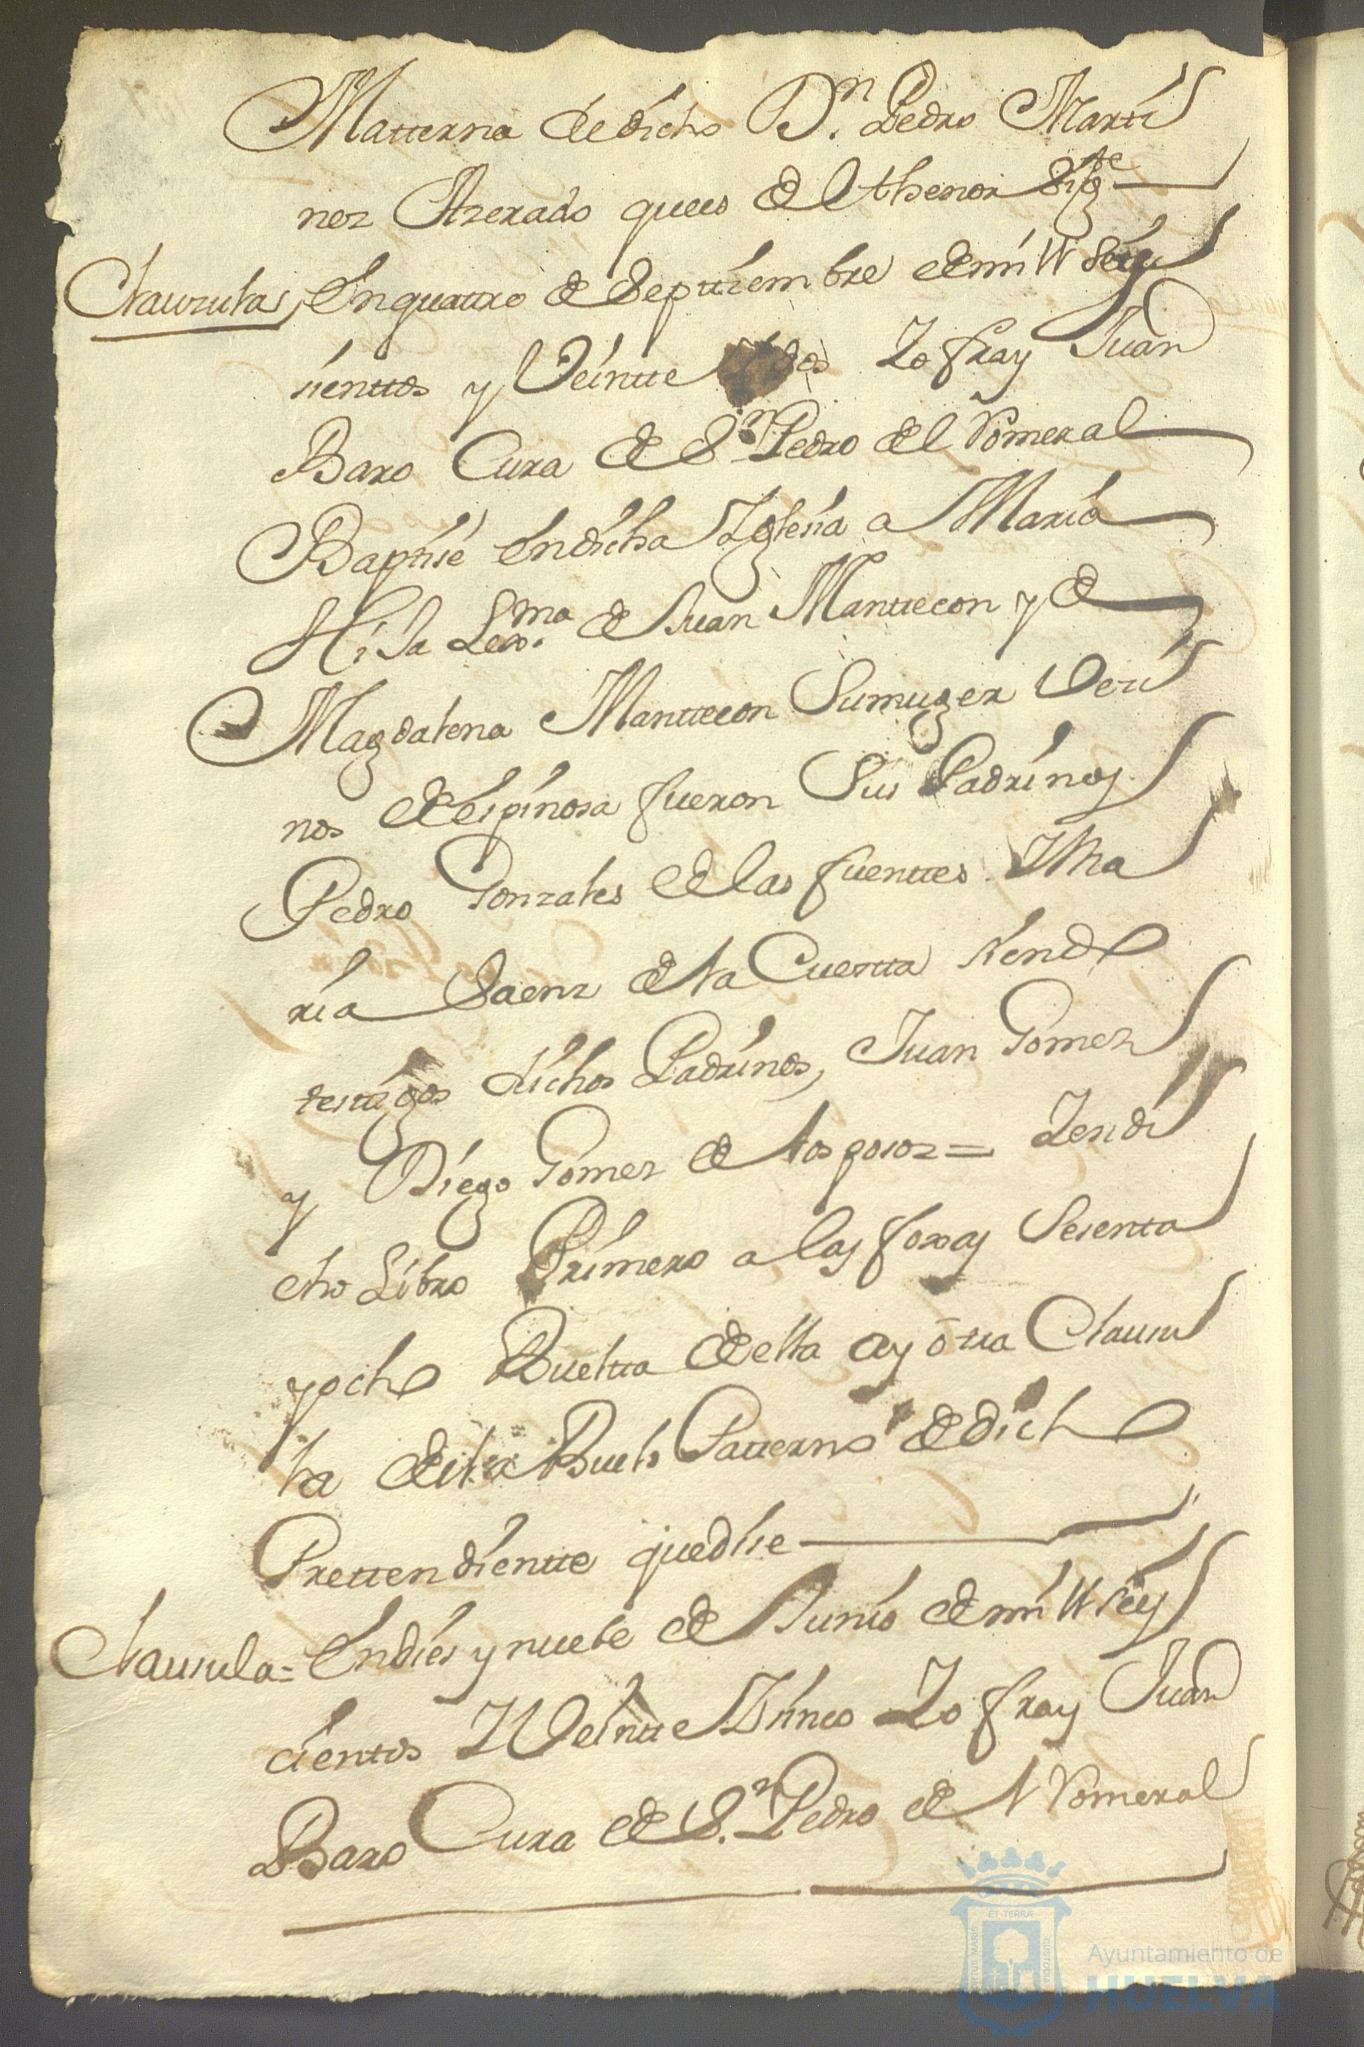 Matterna de dicho Dn. Pedro Marti
nez Azerado quees del thenor Sigte
Clauzula, En quatro de Septtiembre de mill Seis
sienttos y Veintte dos Yo fray Juan
Baro Cura de Sn. Pedro del Romeral
Baptise En dicha Yglesia a Maria
Hija Lexma. de Juan Manttecon y de
Magdalena Manttecon Sumuger Vezi
nos de Espinosa fueron Sus Padrinos
Pedro Gonzales de las fuenttes. Y Ma
ria Saenz de la Cuestta siendo
testigos dichos Padrinos, Juan Gomez
y Diego Gomez de los posos = Yendi
cho Libro Primero a las foxas Sesenta
yocho Buelta della ay otra Clausu
la de la Buelo Patterno de dicho
Prettendientte quedise
Clausula = En dies y nuebe de Junio de mill seis
cientos Y Veintte Y sinco Yo fray Juan
Baro Cura de Sn. Pedro del Romeral
Ayuntamiento de
HUELVA